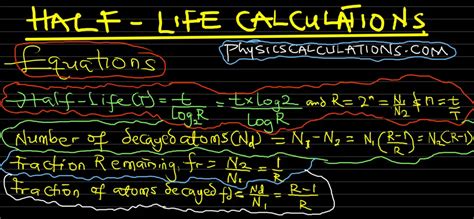 HALF - LIFE CALCULATIONS
PHYSICSCALCULATIONS.COM
Equations
Half-Life (T) = t/log₂R = t×log2/logR and R = 2ⁿ = N₁/N₂ & n = t/T
Number of decayed atoms (Nd) = N₁ - N₂ = N₁(R-1/R) = N₂(R-1)
Fraction Remaining fr = N₂/N₁ = 1/R
Fraction of atoms decayed fd = Nd/N₁ = R-1/R